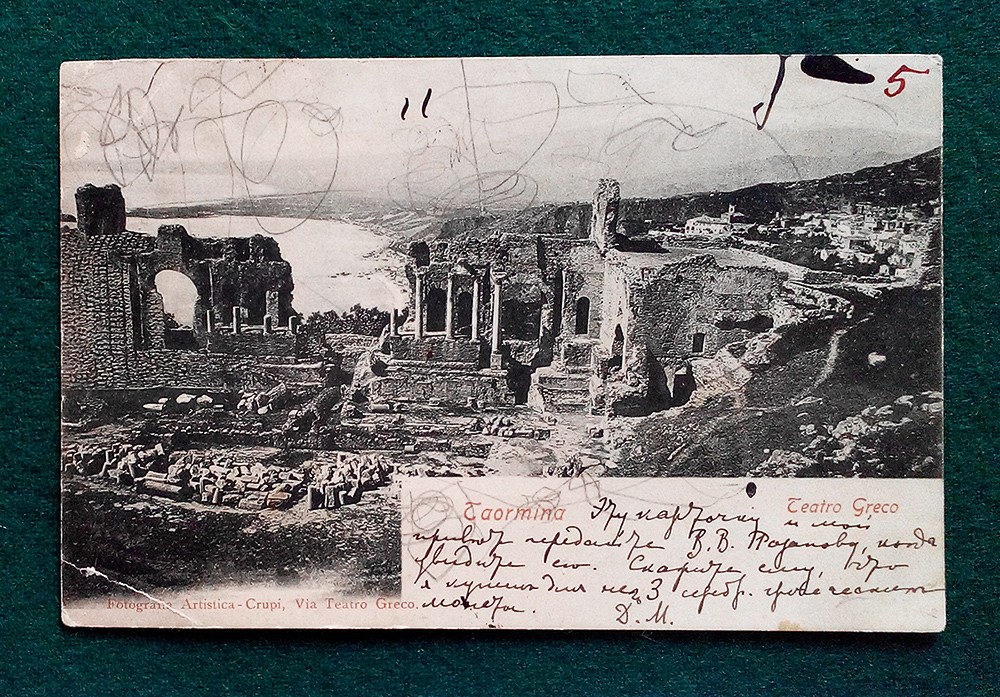 11
5
Taormina
Teatro Greco
Эту карточку и мой
привѣтъ передайте В. В. Розанову, когда
увидите его. Скажите ему, что
я купилъ для него 3 серебр. греческихъ
монеты. Д. М.
Fotografia Artistica - Crupi, Via Teatro Greco.